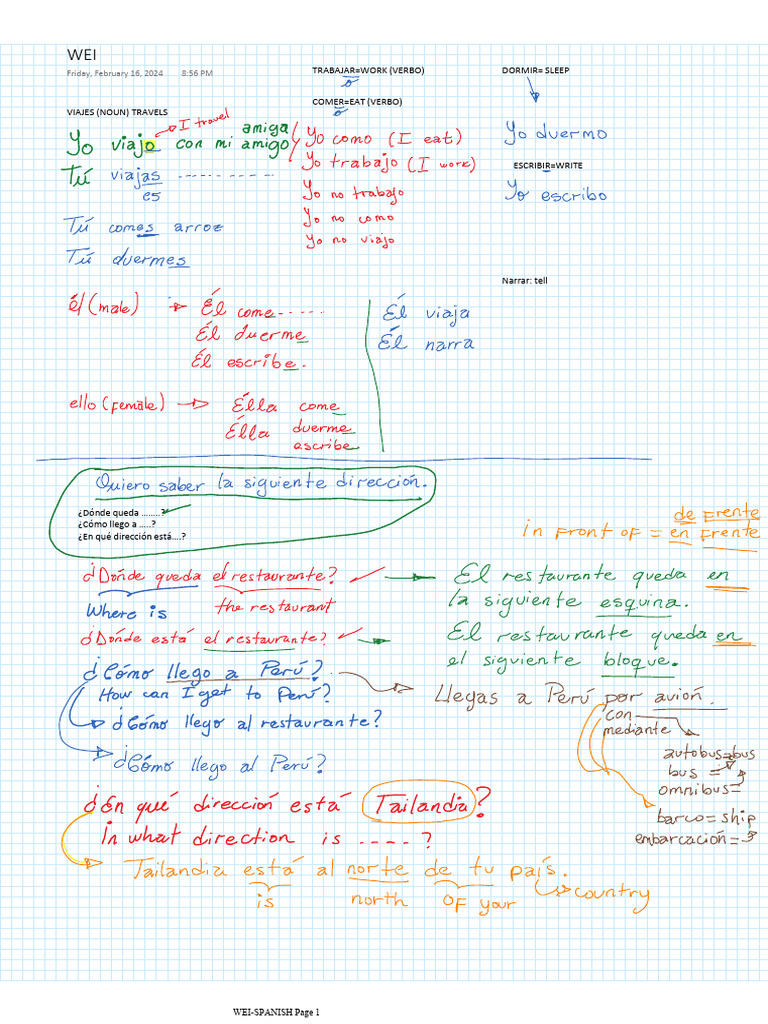 WEI
Friday, February 16, 2024 8:56 PM
TRABAJAR=WORK (VERBO)
o
COMER=EAT (VERBO)
o
DORMIR= SLEEP
Yo duermo
ESCRIBIR=WRITE
Yo escribo
VIAJES (NOUN) TRAVELS
I travel
amiga
Yo viajo con mi amigo
Tú viajas
es
Tú comes arroz
Tú duermes
Yo como (I eat)
Yo trabajo (I work)
Yo no trabajo
Yo no como
Yo no viajo
Narrar: tell
él (male) → Él come.....
Él duerme
Él escribe.
Él viaja
Él narra
ello (female) → Élla come
Élla duerme
escribe
Quiero saber la siguiente dirección.
¿Dónde queda ........?
¿Cómo llego a .....?
¿En qué dirección está....?
de Frente
in Front of = en Frente
¿Dónde queda el restaurante?
Where is the restaurant
¿Dónde está el restaurante?
El restaurante queda en
la siguiente esquina.
El restaurante queda en
el siguiente bloque.
¿Cómo llego a Perú?
How can I get to Perú?
¿Cómo llego al restaurante?
¿Cómo llego al Perú?
Llegas a Perú por avión.
con
mediante
autobus=bus
bus =
omnibus=
barco=ship
embarcación=
¿En qué dirección está Tailandia?
In what direction is ....?
Tailandia está al norte de tu país.
is north of your country
WEI-SPANISH Page 1